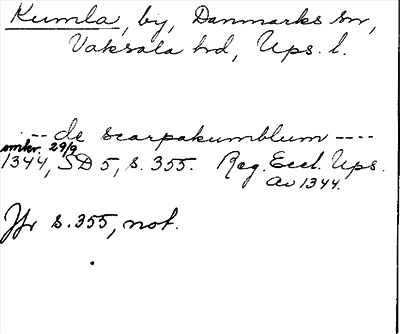 Kumla, by, Danmarks sn,
Vaksala hd, Ups. l.
--- de scarpakumblum ----
omkr. 29/9
1344, SD 5, s. 355. Reg. Eccl. Ups.
av 1344.
Jfr s. 355, not.